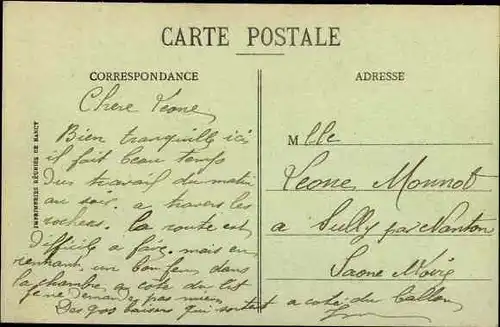 CARTE POSTALE
CORRESPONDANCE
ADRESSE
IMPRIMERIES RÉUNIES DE NANCY
Chere Leone
Bien tranquille ici
il fait beau temps
Du travail du matin
au soir. a travers les
rochers. la route est
difficile a faire. mais en
rentrant un bon feu dans
la chambre a cote du lit
je ne demande pas mieux
Des gos baisers qui sortent a cote du
Mlle
Leone Monnot
a Sully par Nanton
Saone Loire